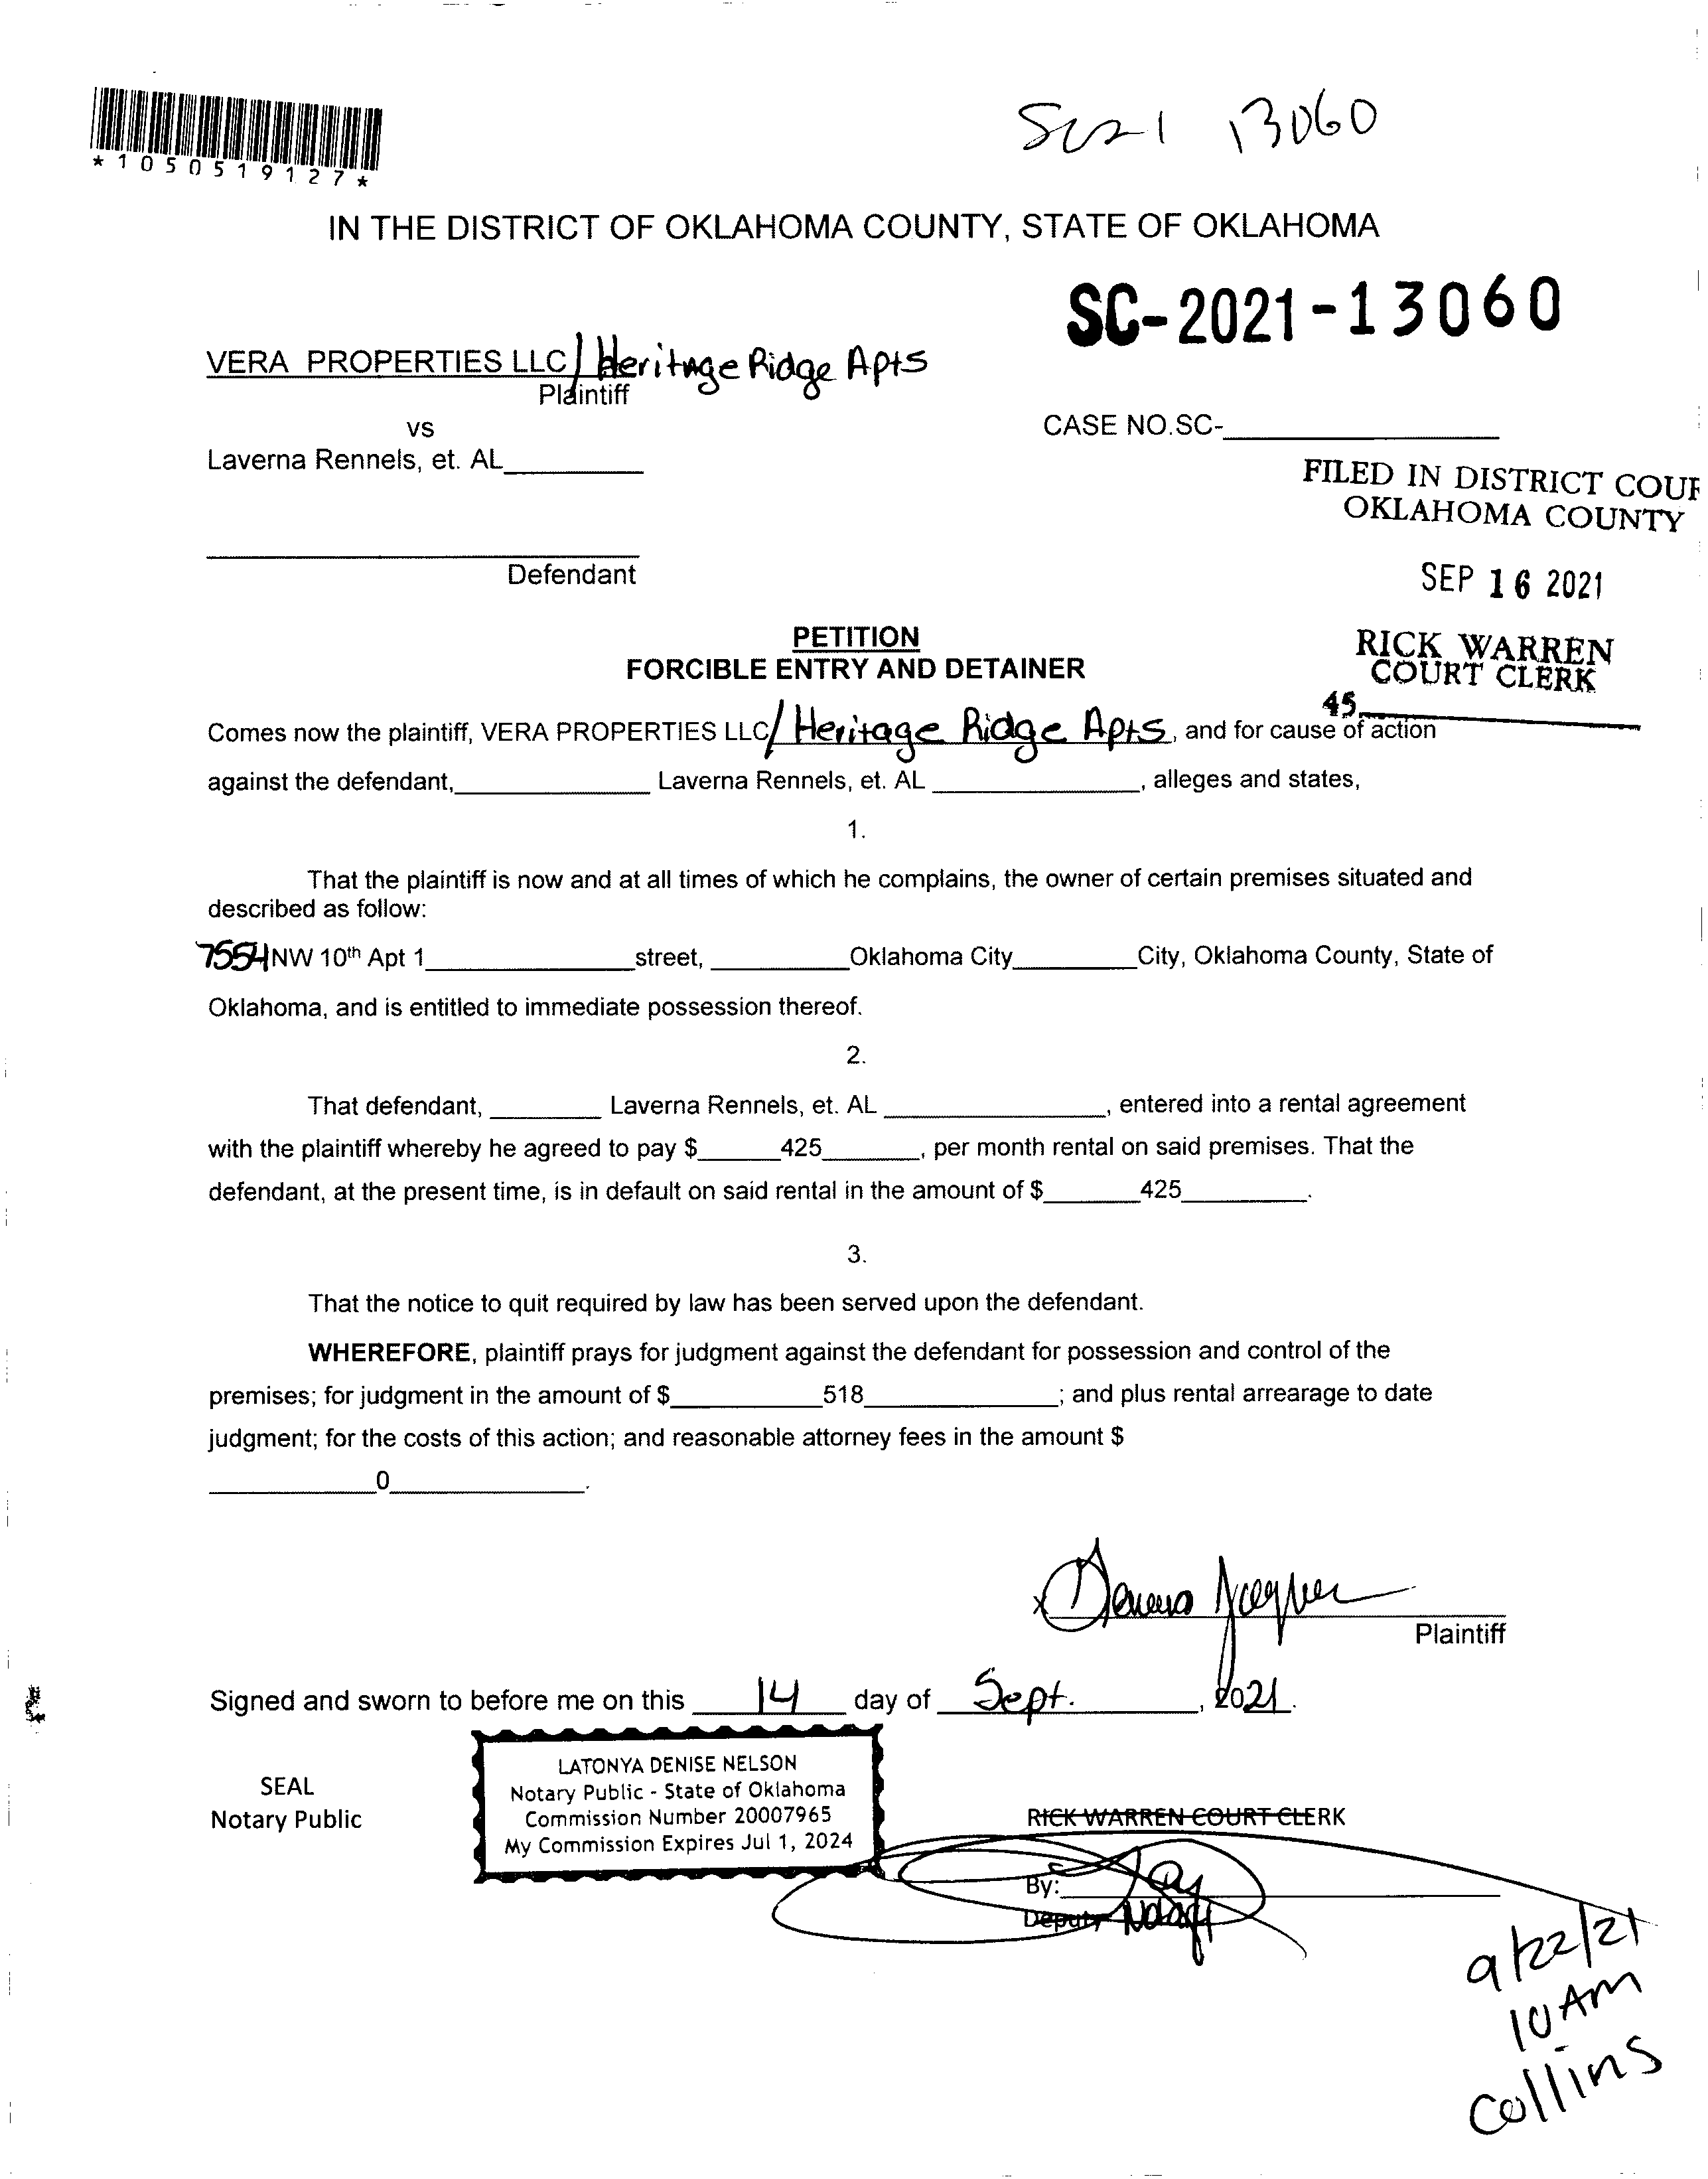 SC21 13060
*1050519127*
IN THE DISTRICT OF OKLAHOMA COUNTY, STATE OF OKLAHOMA
SC-2021-13060
VERA PROPERTIES LLC/Heritage Ridge Apts
Plaintiff
vs
CASE NO.SC-
Laverna Rennels, et. AL
FILED IN DISTRICT COUR
OKLAHOMA COUNTY
Defendant
SEP 16 2021
PETITION
FORCIBLE ENTRY AND DETAINER
RICK WARREN
COURT CLERK
45
Comes now the plaintiff, VERA PROPERTIES LLC/Heritage Ridge Apts, and for cause of action
against the defendant, Laverna Rennels, et. AL, alleges and states,
1.
That the plaintiff is now and at all times of which he complains, the owner of certain premises situated and
described as follow:
7554 NW 10th Apt 1 street, Oklahoma City City, Oklahoma County, State of
Oklahoma, and is entitled to immediate possession thereof.
2.
That defendant, Laverna Rennels, et. AL, entered into a rental agreement
with the plaintiff whereby he agreed to pay $ 425, per month rental on said premises. That the
defendant, at the present time, is in default on said rental in the amount of $ 425.
3.
That the notice to quit required by law has been served upon the defendant.
WHEREFORE, plaintiff prays for judgment against the defendant for possession and control of the
premises; for judgment in the amount of $ 518; and plus rental arrearage to date
judgment; for the costs of this action; and reasonable attorney fees in the amount $
0.
x
Plaintiff
Signed and sworn to before me on this 14 day of Sept., 2021.
LATONYA DENISE NELSON
Notary Public - State of Oklahoma
Commission Number 20007965
My Commission Expires Jul 1, 2024
SEAL
Notary Public
RICK WARREN COURT CLERK
By:
Deputy
9/22/21
10 AM
Collins